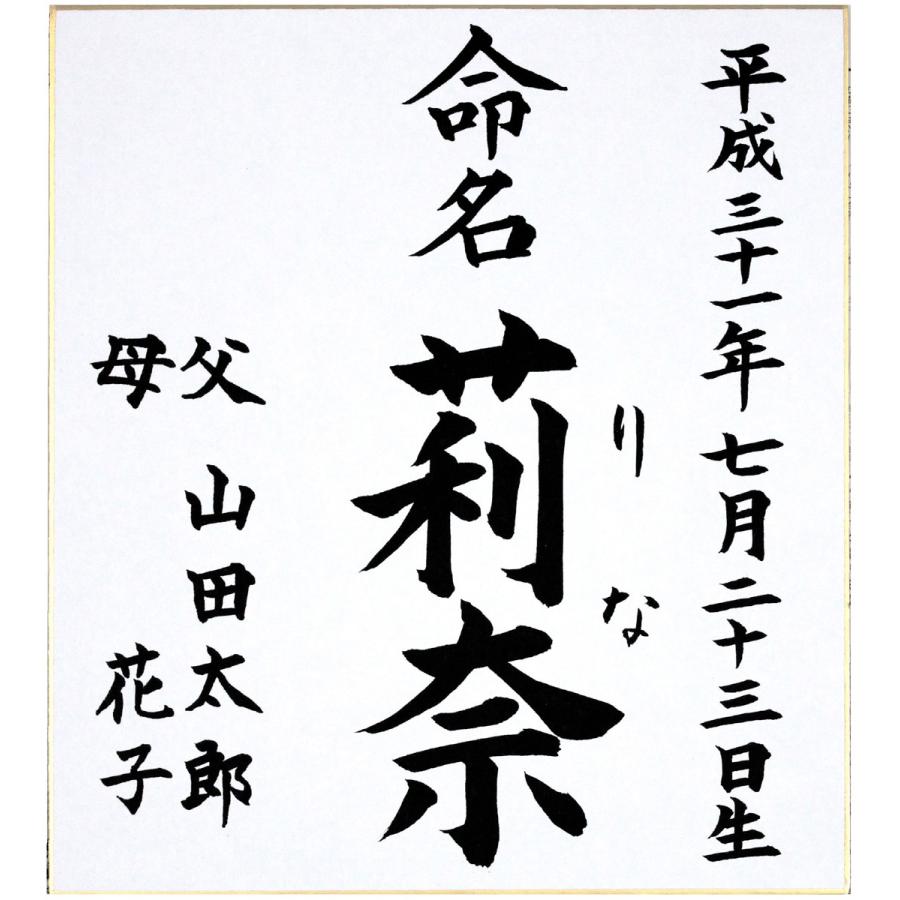 平成三十一年七月二十三日生
りな
命名 莉奈
父 山田太郎
母 花子